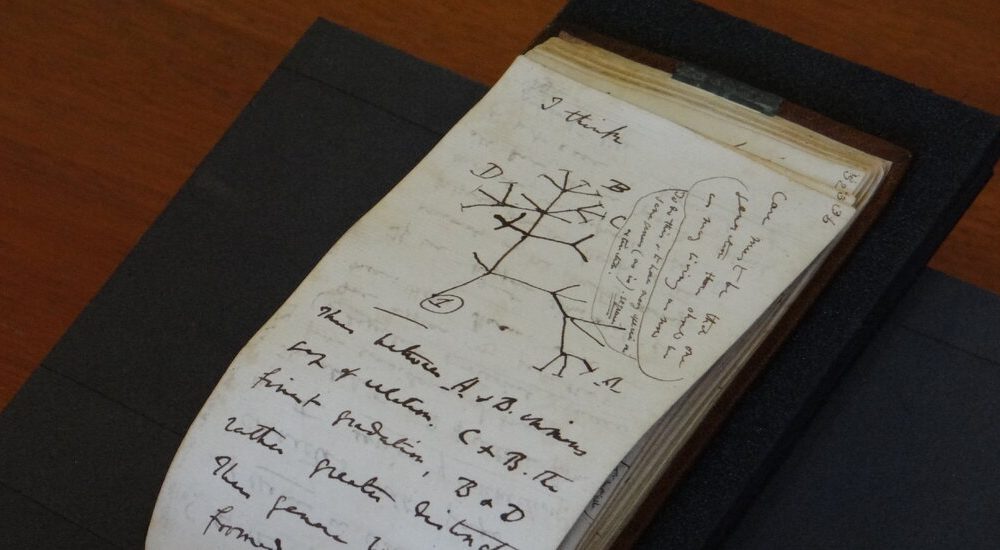 I think
36
Case must be that one
generation then should be
as many living as now
To do this & to have many species in
same genus (as is) requires
extinction.
D
B
C
A
1
Thus between A. & B. immens
gap of relation. C & B. The
finest gradation, B & D
rather greater distinct
Thus genera
formed